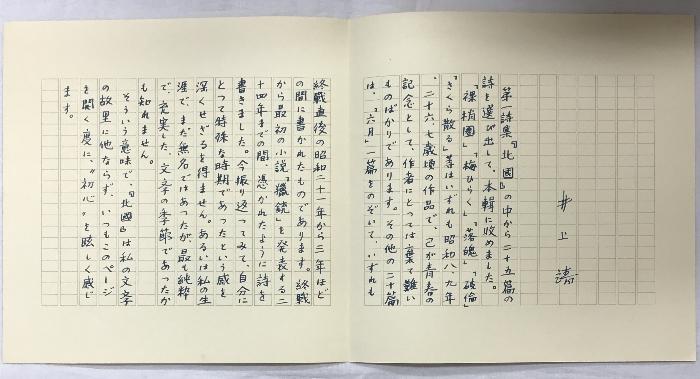 井上靖
第一詩集『北國』の中から二十五篇の
詩を選び出して、本輯に收めました。
「裸梢園」「梅ひらく」「落魄」「破倫」
「さくら散る」等はいずれも昭和八、九年
、二十六、七歳頃の作品で、己が青春の
記念として、作者にとっては棄て難い
ものばかりであります。その他の二十篇
は、「六月」一篇をのぞいて、いずれも
終戰直後の昭和二十一年から三年ほど
の間に書かれたものであります。終戰
から最初の小説「獵銃」を発表する二
十四年までの間、憑かれたように詩を
書きました。今振り返ってみて、自分に
とって特殊な時期であったという感を
深くせざるを得ません。あるいは私の生
涯で、まだ無名ではあったが、最も純粋
で、充実した文学の季節であったか
も知れません。
そういう意味で、『北國』は私の文学
の故里に他ならず、いつもこのページ
を開く度に、〝初心〟を眩しく感じ
ます。